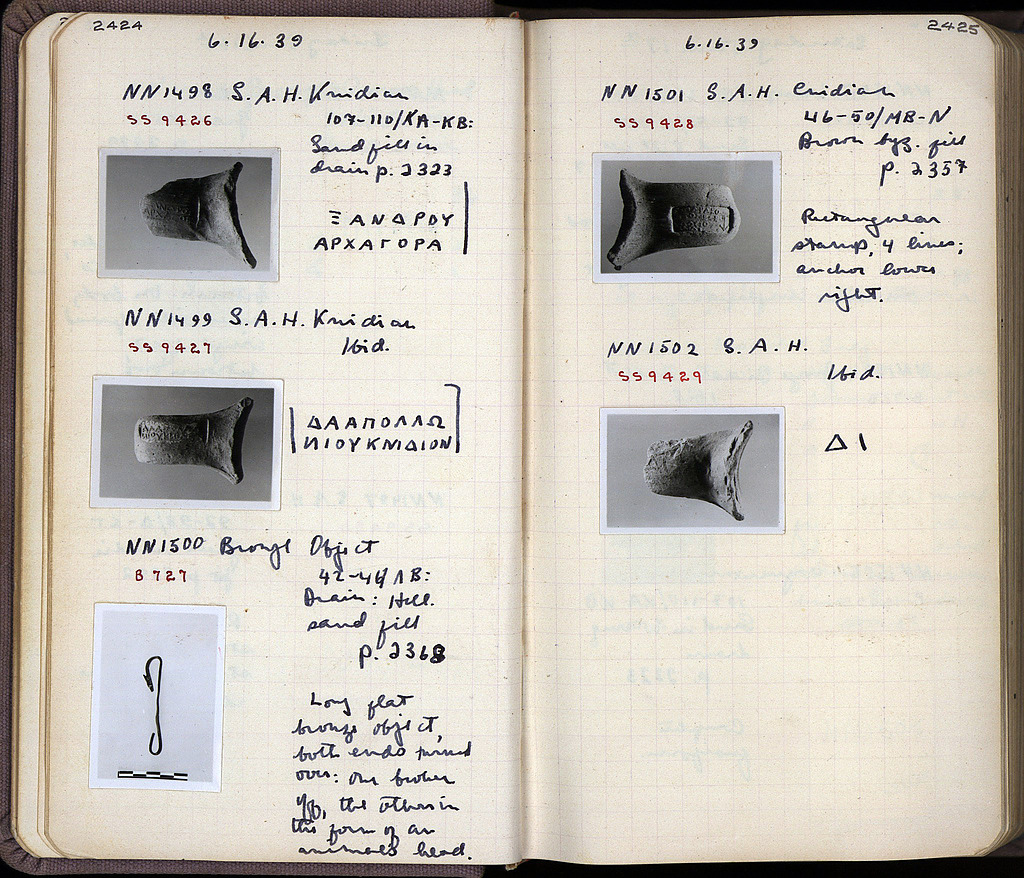 2424
6.16.39
NN1498 S.A.H. Knidian
SS 9426
107-110/KA-KB:
Sand fill in
drain p. 2323
ΞΑΝΔΡΟΥ
ΑΡΧΑΓΟΡΑ
NN1499 S.A.H. Knidian
SS 9427
Ibid.
ΔΑΑΠΟΛΛΩ
ΝΙΟΥΚΝΙΔΙΟΝ
NN1500 Bronze Object
B 727
42-44/ΛΒ:
Drain: Hell.
sand fill
p. 2368
Long flat
bronze object,
both ends turned
over: one broken
off, the other in
the form of an
animal's head.
2425
6.16.39
NN1501 S.A.H. Cnidian
SS 9428
46-50/MB-N
Brown byz. fill
p. 2357
Rectangular
stamp, 4 lines;
anchor lower
right.
NN1502 S.A.H.
SS 9429
Ibid.
ΔΙ